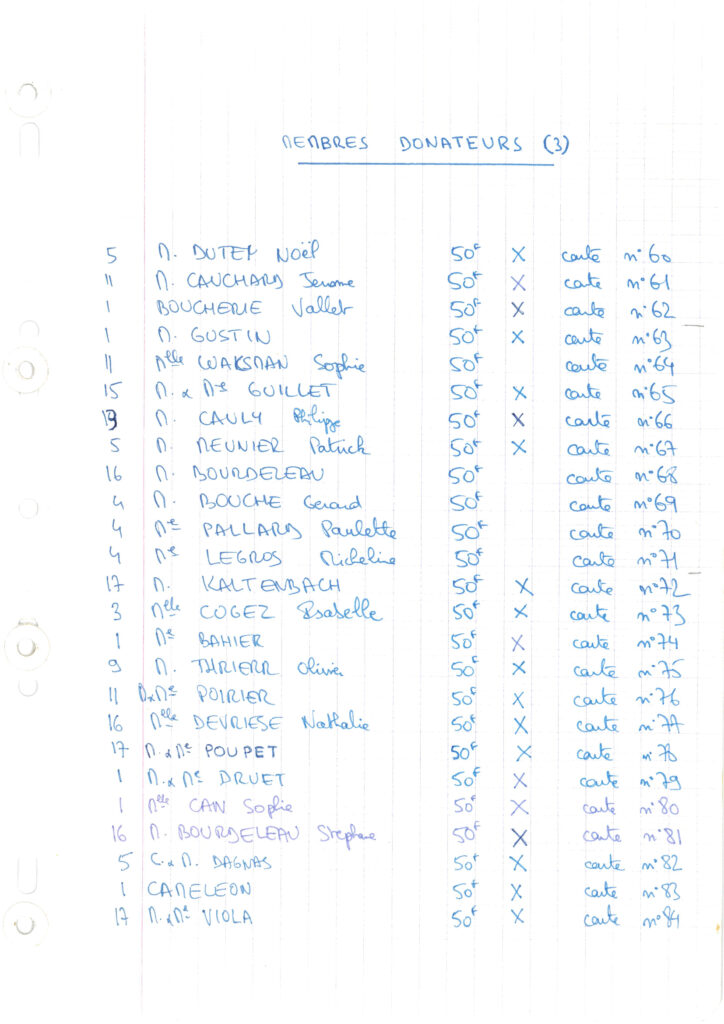 MEMBRES DONATEURS (3)
5 M. DUTEY Noël 50F X carte n°60
11 M. CAUCHARD Jerome 50F X carte n°61
1 BOUCHERIE Vallet 50F X carte n°62
1 M. GUSTIN 50F X carte n°63
11 Melle WAKSMAN Sophie 50F carte n°64
15 M. & Me GUILLET 50F X carte n°65
M. CAULY Philippe 50F X carte n°66
5 M. MEUNIER Patrick 50F X carte n°67
16 M. BOURDELEAU 50F carte n°68
4 M. BOUCHE Gerard 50F carte n°69
4 Me PALLARD Paulette 50F carte n°70
4 Me LEGROS Micheline 50F carte n°71
17 M. KALTENBACH 50F X carte n°72
3 Melle COGEZ Isabelle 50F X carte n°73
1 Me BAHIER 50F X carte n°74
9 M. THRIERR Olivier 50F X carte n°75
11 M & Me POIRIER 50F X carte n°76
16 Melle DEVRIESE Nathalie 50F X carte n°77
17 M. & Me POUPET 50F X carte n°78
1 M. & Me DRUET 50F X carte n°79
1 Melle CAN Sophie 50F X carte n°80
16 M. BOURDELEAU Stephane 50F X carte n°81
5 C. & M. DAGNAS 50F X carte n°82
1 CAMELEON 50F X carte n°83
17 M. & Me VIOLA 50F X carte n°84